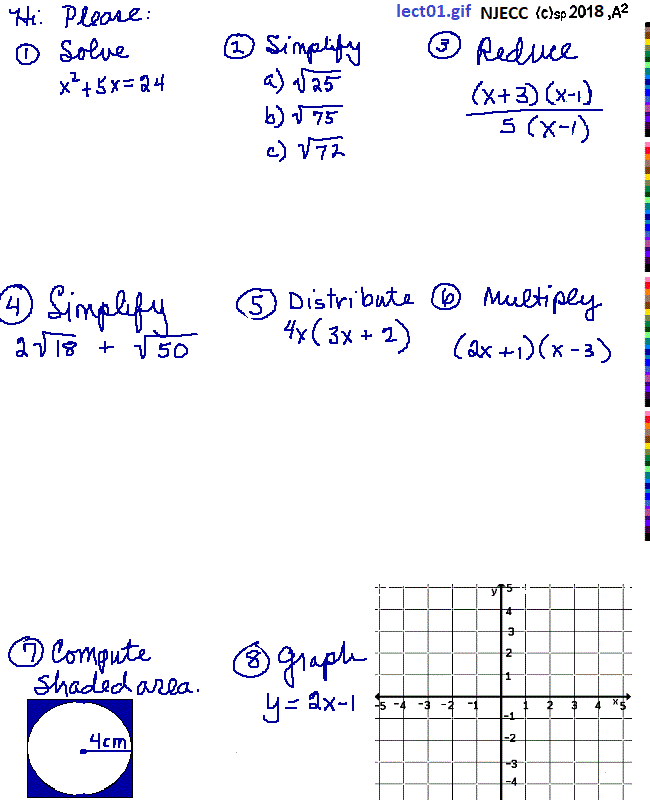 lect01.gif NJECC (c)sp 2018 ,A²
Hi Please:
① Solve
x² + 5x = 24
② Simplify
a) √25
b) √75
c) √72
③ Reduce
(x+3)(x-1)
5(x-1)
④ Simplify
2√18 + √50
⑤ Distribute
4x(3x + 2)
⑥ Multiply
(2x+1)(x-3)
⑦ Compute
shaded area.
4cm
⑧ Graph
y = 2x-1
y 5
4
3
2
1
-5 -4 -3 -2 -1 1 2 3 4 x 5
-1
-2
-3
-4